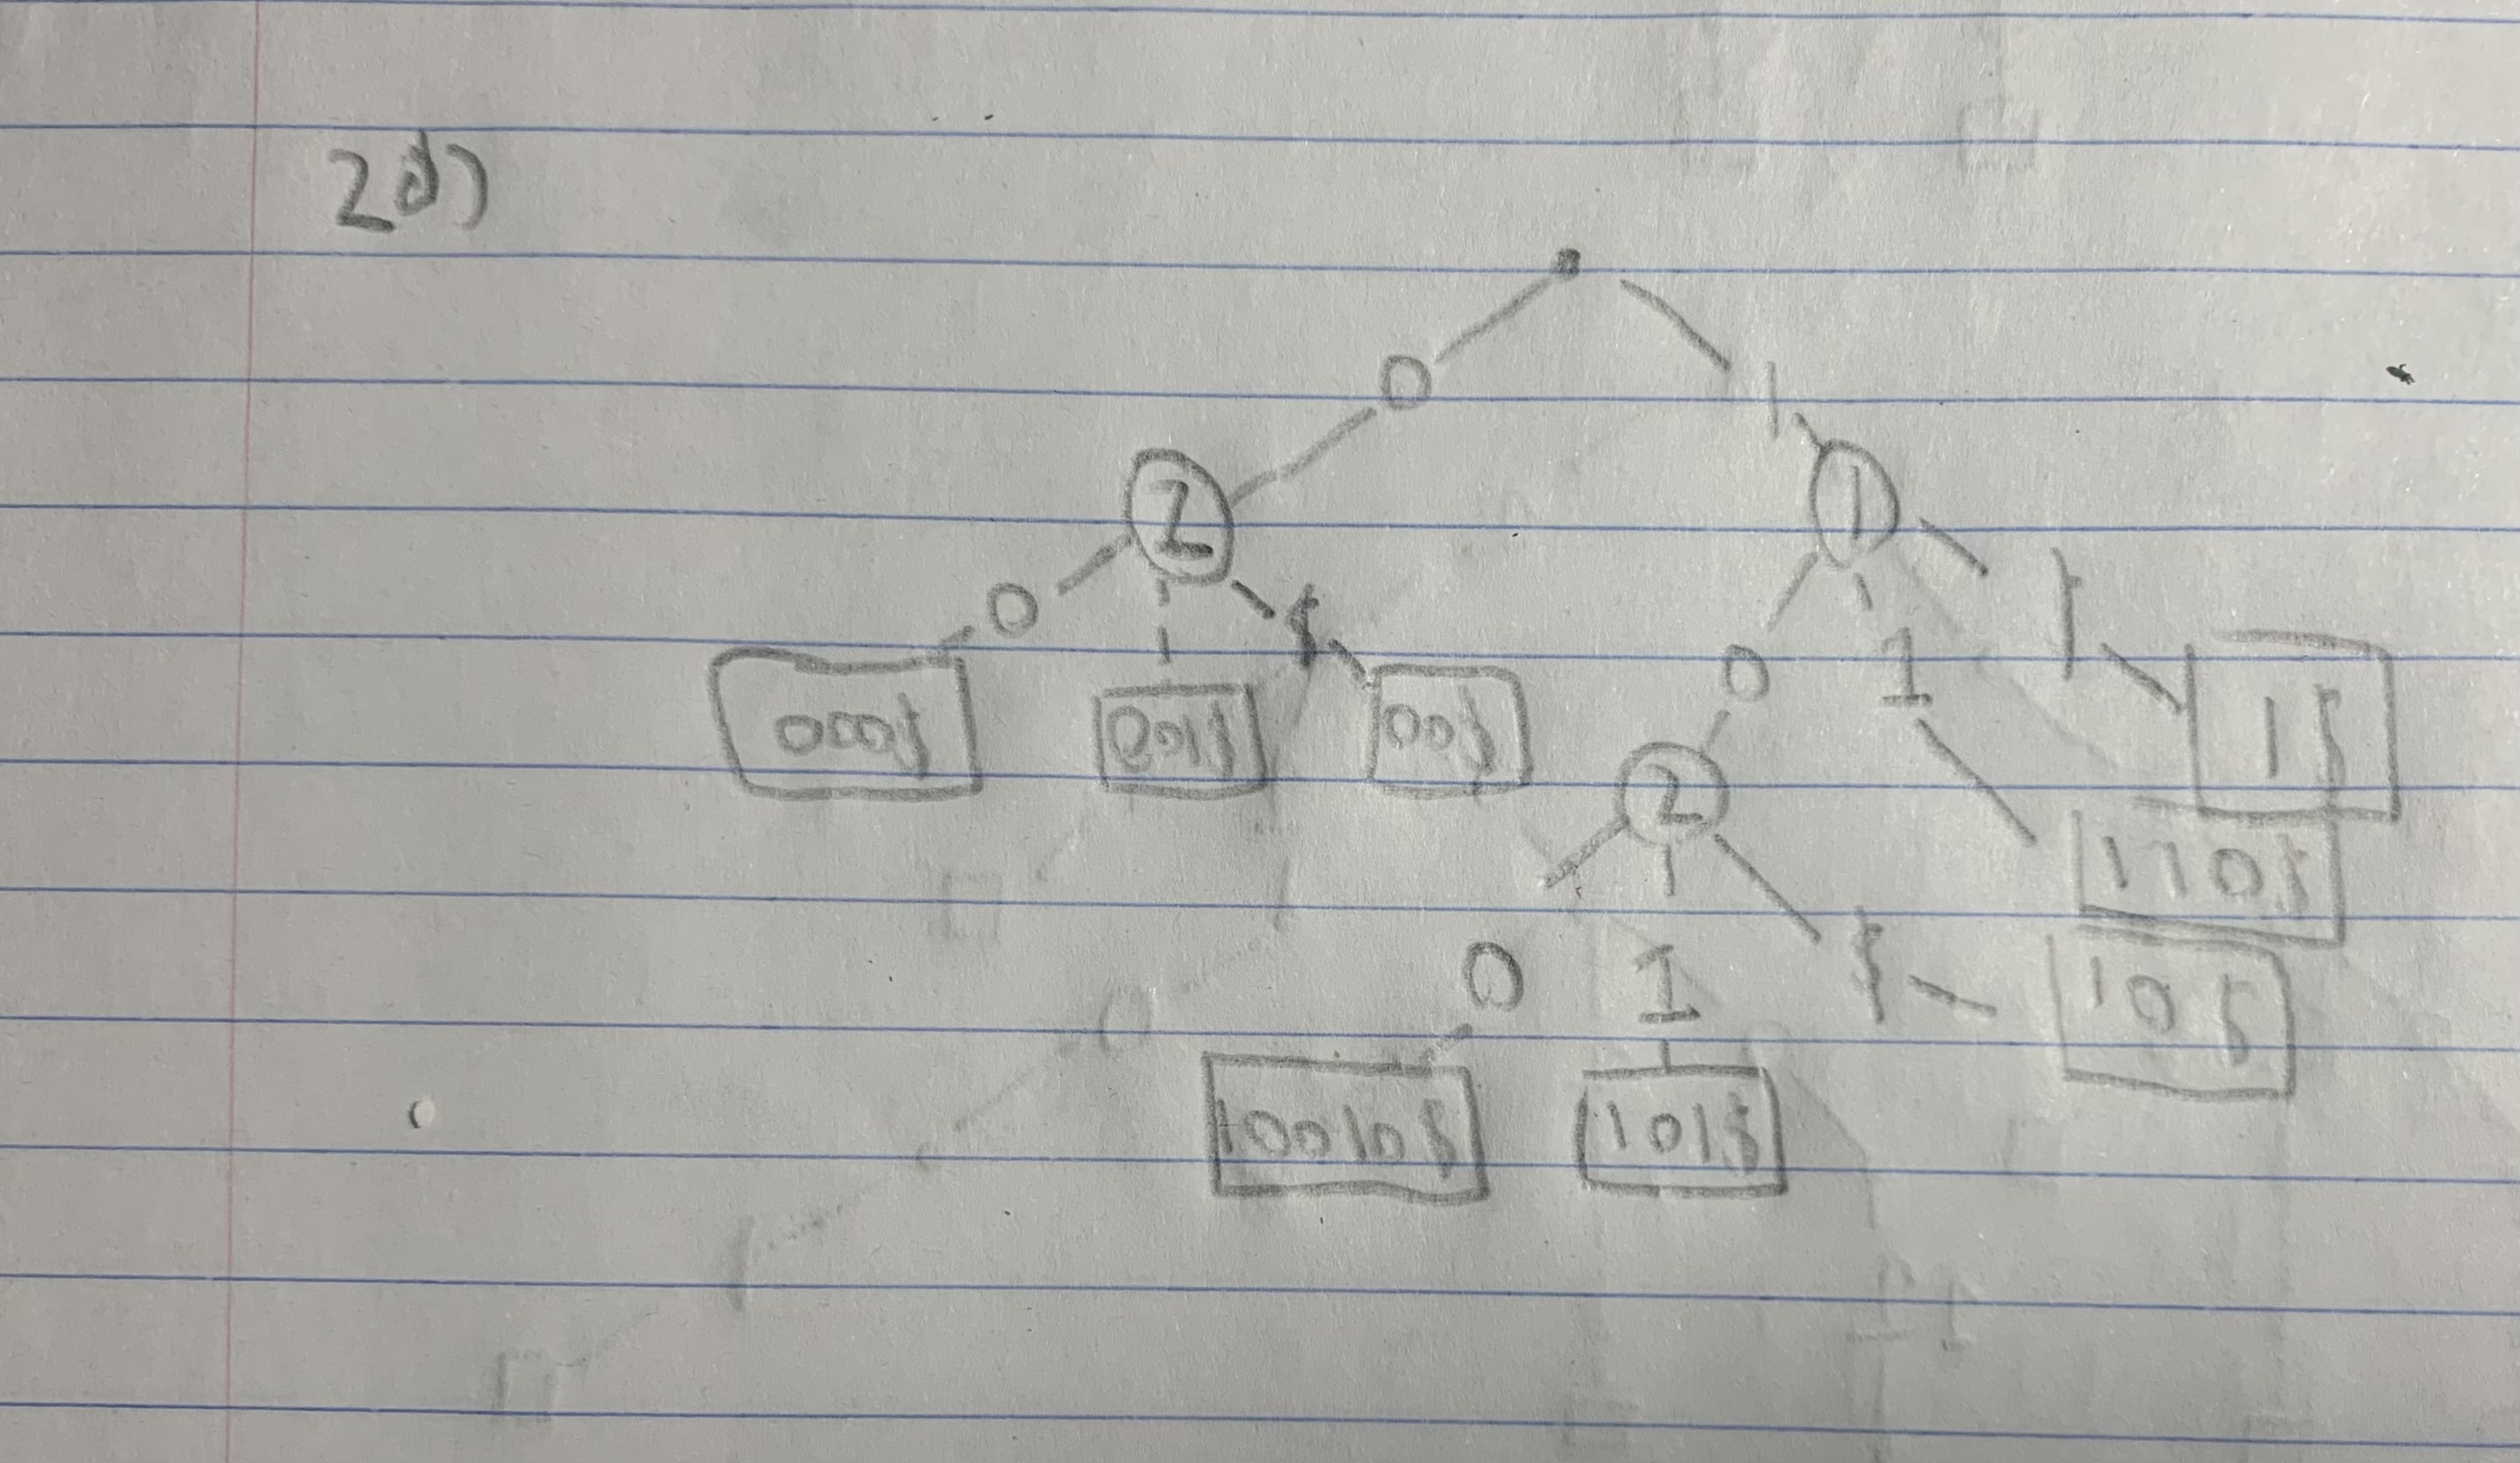 2d)
0 1
2 1
0 1 $ 0 1 $
000$ 001$ 00$ 1$
2 110$
0 1 $ 10$
10010$ 101$